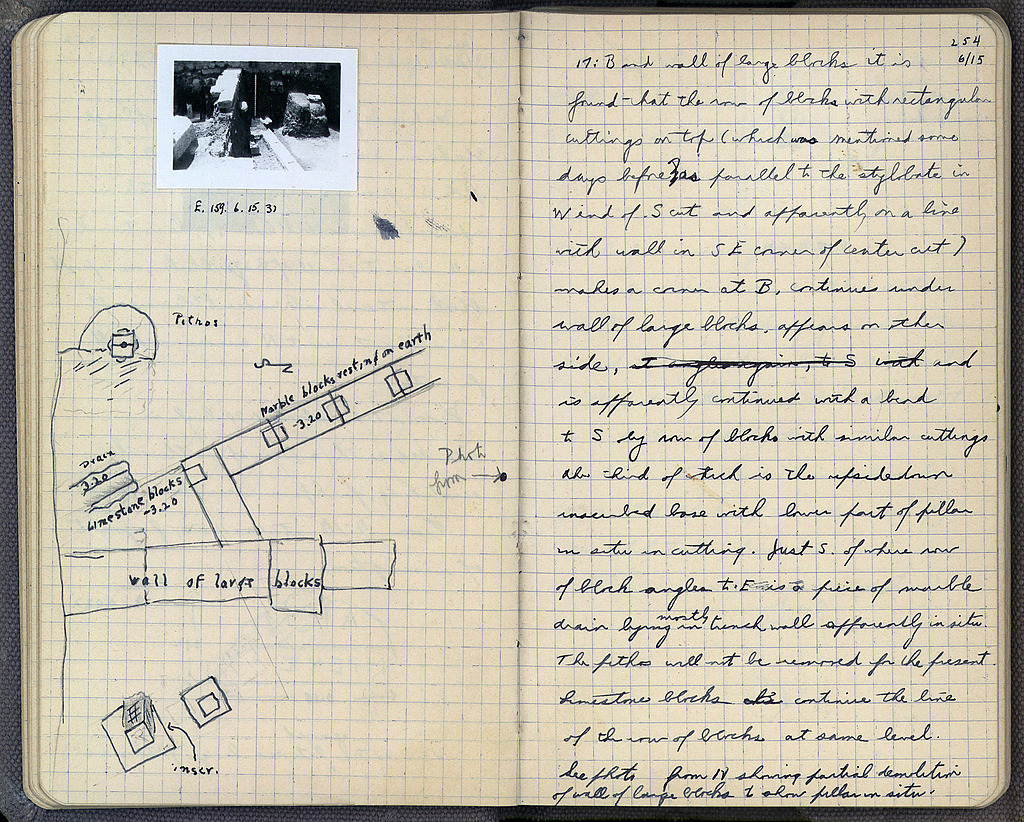 E. 159. 6. 15. 31
Pithos
N
Marble blocks resting on earth
-3.20
Drain
3.20
Limestone blocks
-3.20
Photo
from
wall of large blocks
inscr.
254
6/15
17: B and wall of large blocks it is
found that the row of blocks with rectangular
cuttings on top (which was mentioned some
days before as parallel to the stylobate in
W end of S cut and apparently on a line
with wall in SE corner of center cut)
makes a corner at B, continues under
wall of large blocks, appears on other
side, at angle again, to S with and
is apparently continued with a bend
to S by row of blocks with similar cuttings
the third of which is the upside down
inscribed base with lower part of pillar
in situ in cutting. Just S. of where row
of block angles to E is a piece of marble
drain lying mostly in trench wall apparently in situ.
The pithos will not be removed for the present.
Limestone blocks continue the line
of the row of blocks at same level.
See photo from N showing partial demolition
of wall of large blocks to show pillar in situ.